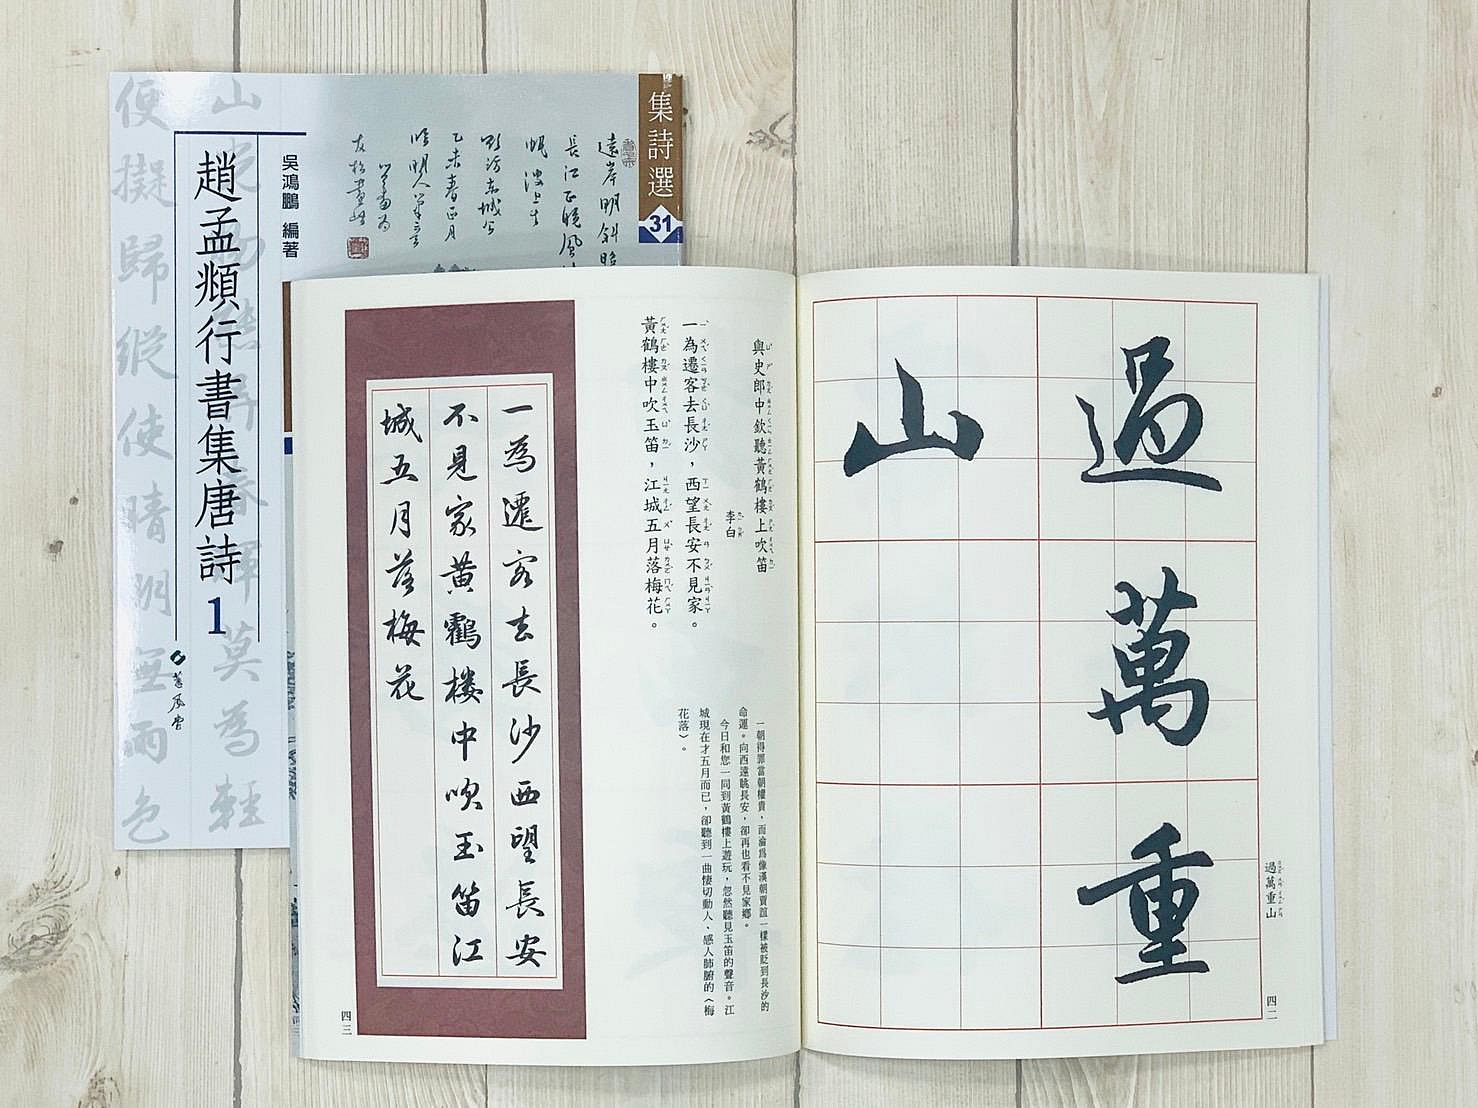 集詩選
31
遠岸明斜照
長江正曉風
帆
吳鴻鵬 編著
趙孟頫行書集唐詩
1
蕙風堂
山
為輕
便擬歸
縱使晴明無雨色
過萬重
山
過萬重山
四二
與史郎中欽聽黃鶴樓上吹笛
李白
一為遷客去長沙，西望長安不見家。
黃鶴樓中吹玉笛，江城五月落梅花。
一朝得罪當朝權貴，而淪為像漢朝賈誼一樣被貶到長沙的
命運。向西遠眺長安，卻再也看不見家鄉。
今日和您一同到黃鶴樓上遊玩，忽然聽見玉笛的聲音。江
城現在才五月而已，卻聽到一曲悽切動人、感人肺腑的〈梅
花落〉。
一為遷客去長沙西望長安
不見家黃鶴樓中吹玉笛江
城五月落梅花
四三